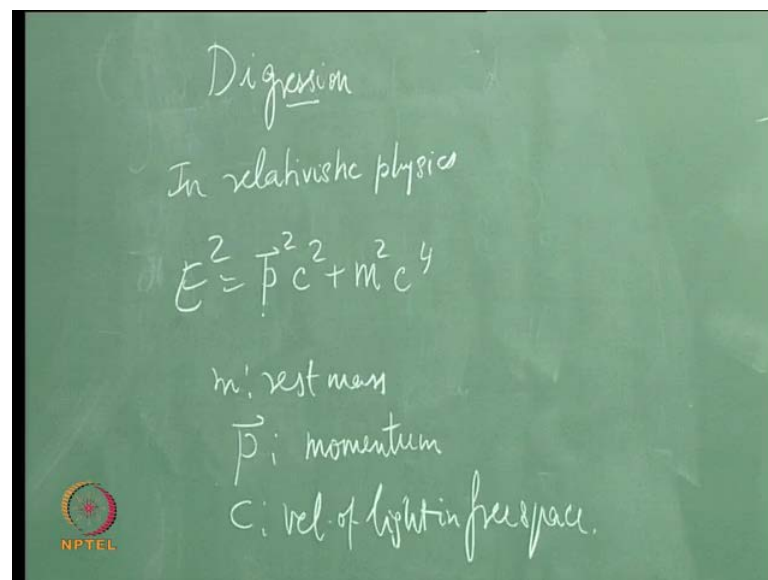 Digression
In relativistic physics
E² = p⃗² c² + m² c⁴
m: rest mass
p⃗: momentum
c: vel. of light in free space.
NPTEL